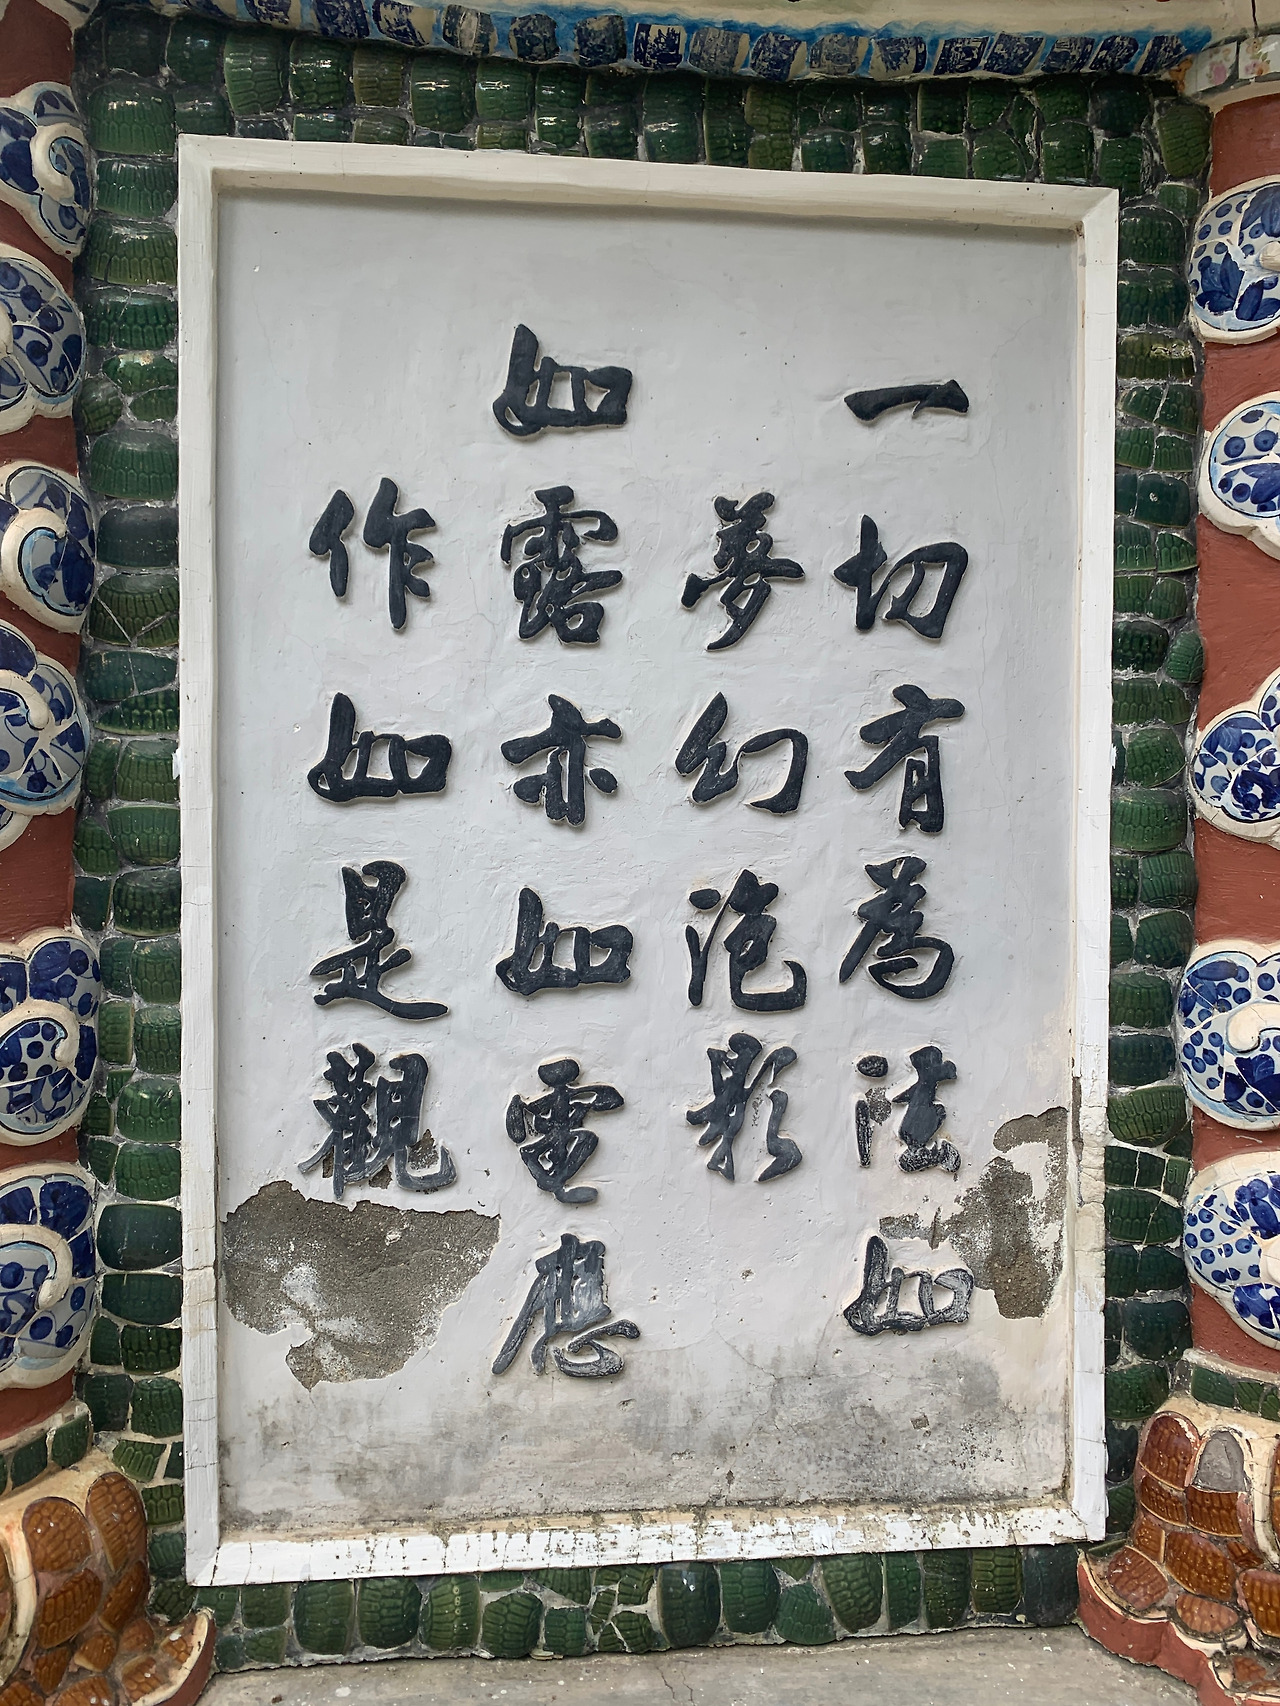 一切有為法如
夢幻泡影
如露亦如電應
作如是觀